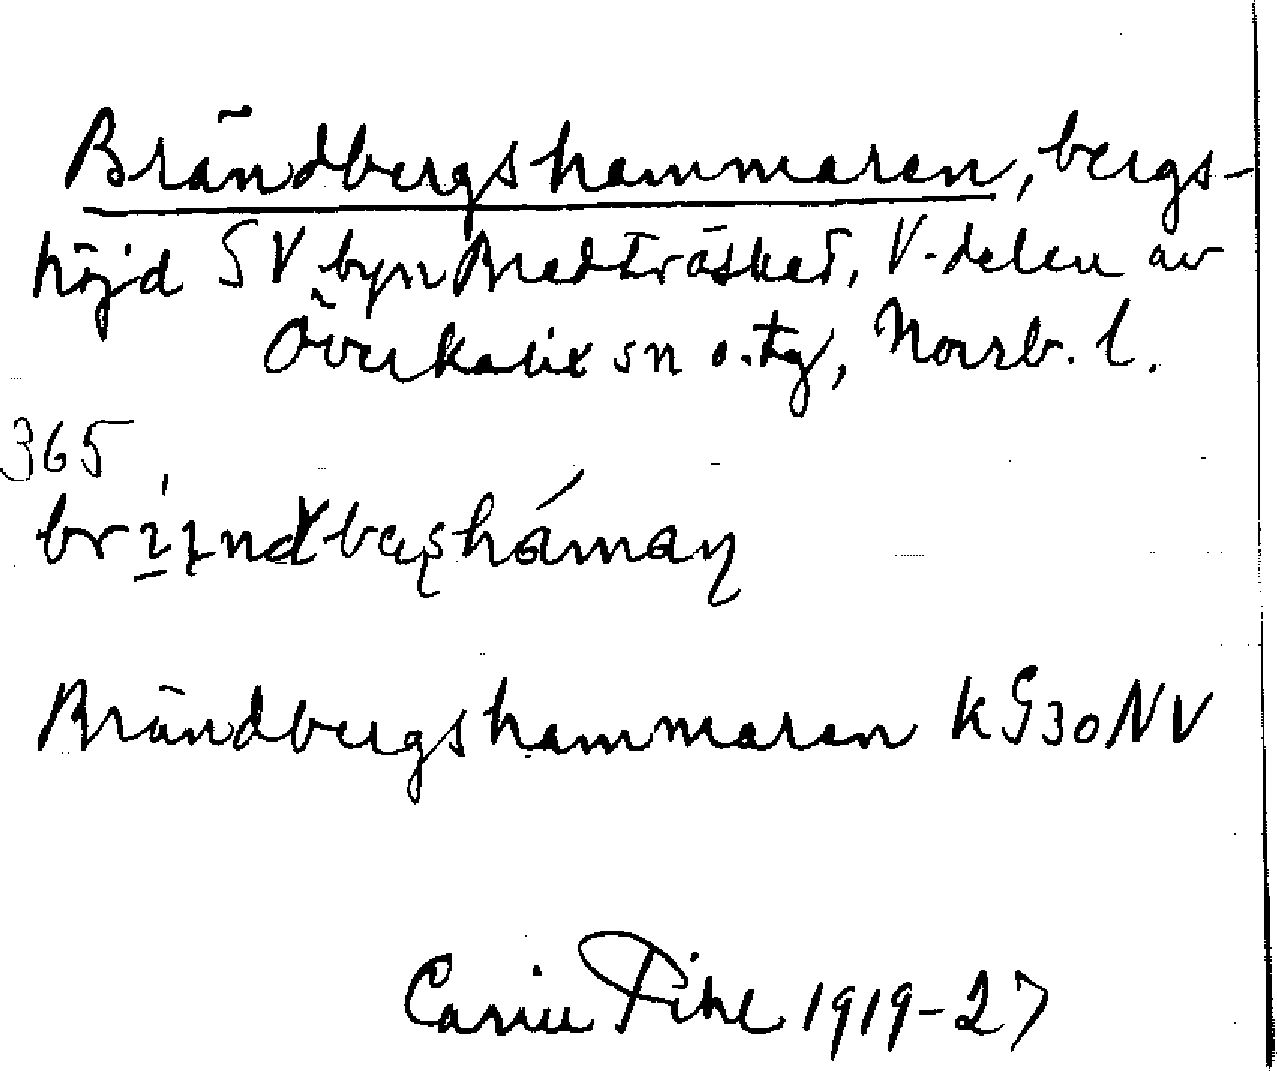 Brändbergshammaren, bergs-
höjd SV byn Bredträsket, V-delen av
Överkalix sn o. tg, Norrb. l.
365
Brändbergshammaren KG30NV
Carin Pihl 1919-27